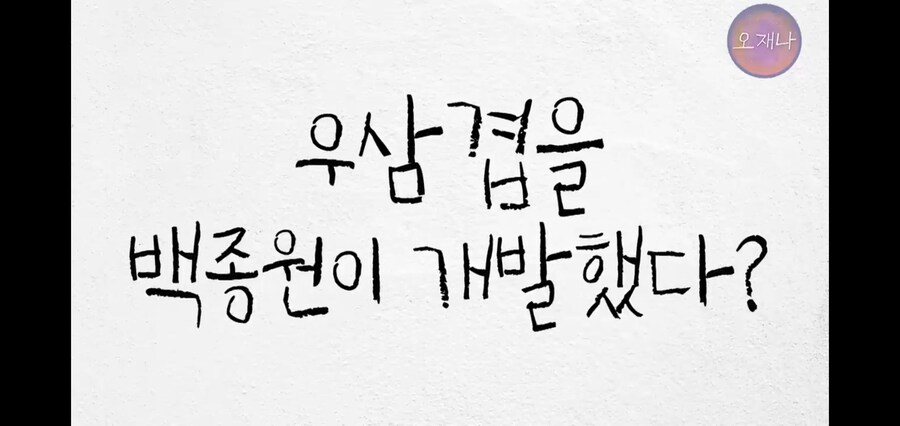 오재나
우삼겹을
백종원이 개발했다?